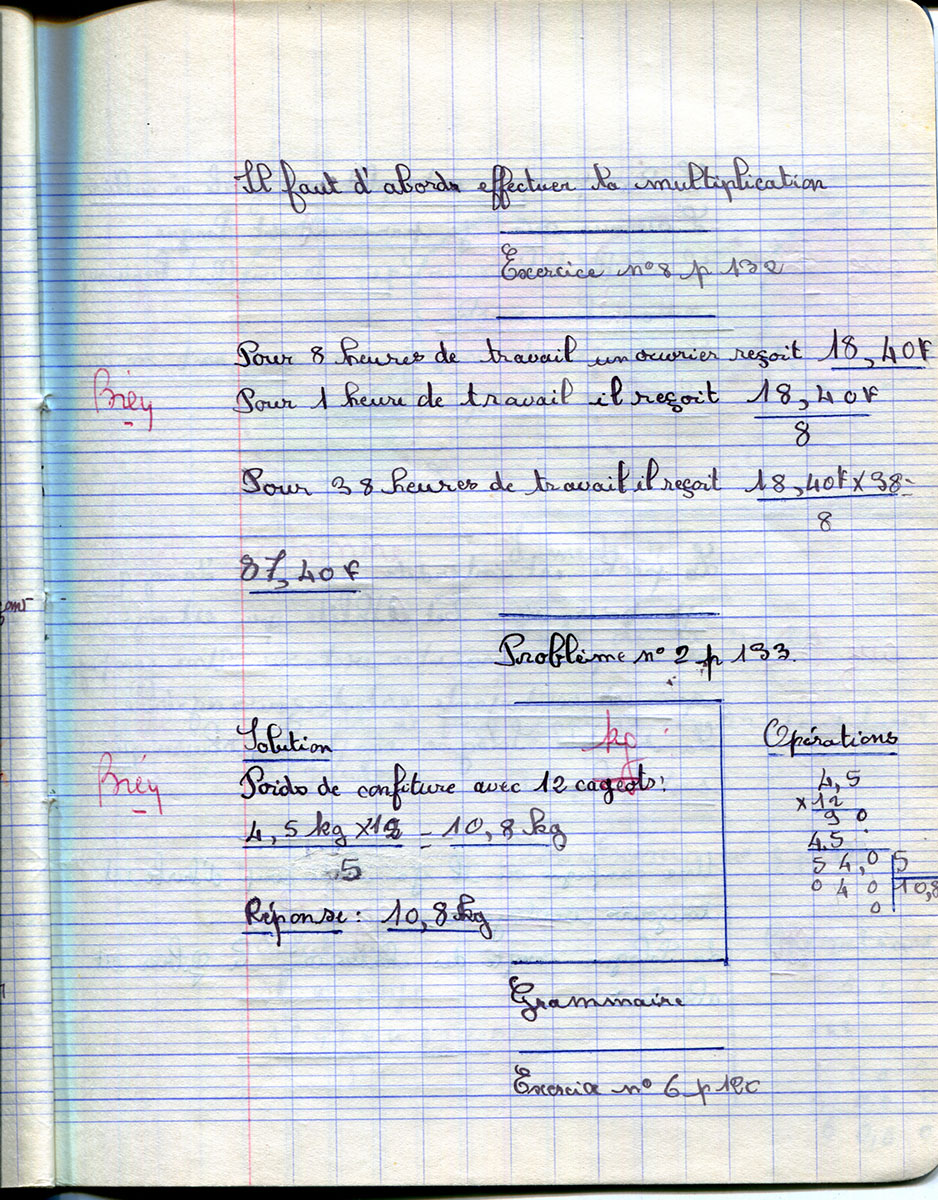 Il faut d'abord effectuer la multiplication
Exercice n°8 p 132
Pour 8 heures de travail un ouvrier reçoit 18,40F
Pour 1 heure de travail il reçoit 18,40F
8
Pour 38 heures de travail il reçoit 18,40F x 38 =
8
87,40F
Problème n° 2 p 133.
Solution
kg
Opérations
Poids de confiture avec 12 cageots:
4,5 kg x 12 = 10,8 kg
5
Réponse : 10,8 kg
4,5
x 12
9 0
4 5 .
5 4,0 5
0 4 0 10,8
0
Grammaire
Exercice n° 6 p